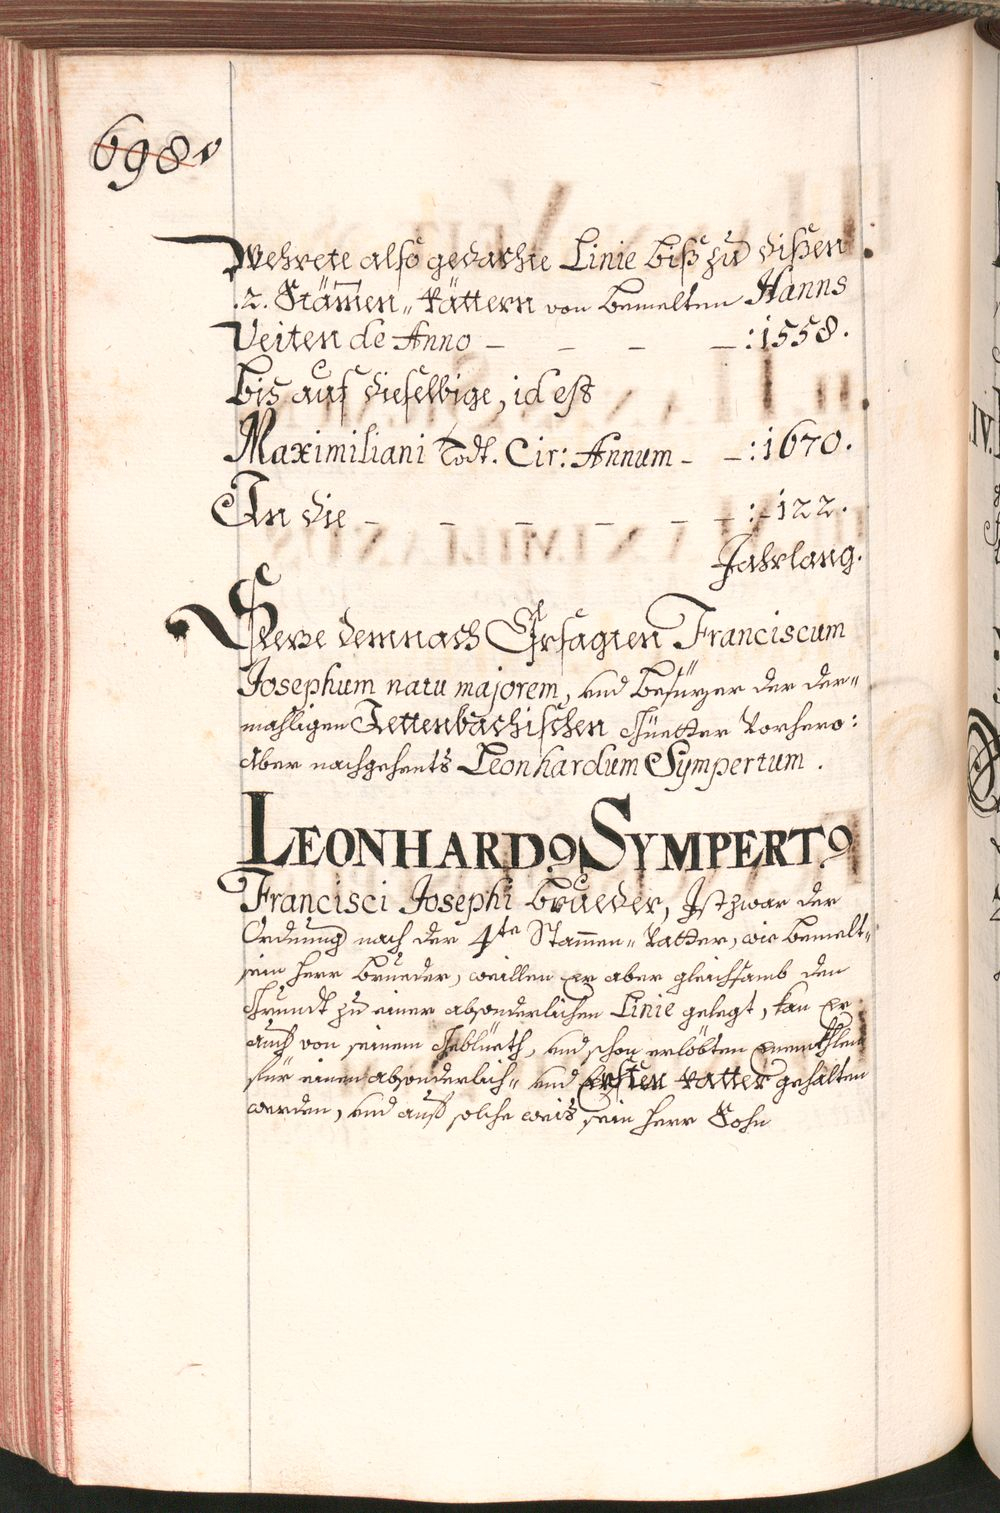 698v
Wehrete also gedachte Linie biß zu disen
.2. Stam̄en„ Vättern von bemelten Hanns
Veiten de Anno – – – –:1558.
bis auf dieselbige, id est
Maximiliani Todt. Cir: Annum – –:1670.
In die – – – – – –:–122.
Jahrlang.
Seze demnach Ersagten Franciscum
Josephum natu majorem, und Besüzer der der„
mahligen Jettenbachischen Güetter Vorhero:
Aber nachgehents Leonhardum Sympertum.
LEONHARD9 SYMPERT9
Francisci Josephi Brueder, Ist zwar der
Ordnung nach der 4te Stam̄en„ Vatter, wie bemelt„
sein Herr Brueder, weillen Er aber gleichsamb den
Grundt zu einer absonderlichen Linie gelegt, kan Er
auch von seinem Geblüeth, und schon erlöbten
für einen absonderlich„ und Ersten Vatter gehalten
werden, und auf solche weis sein Herr Sohn